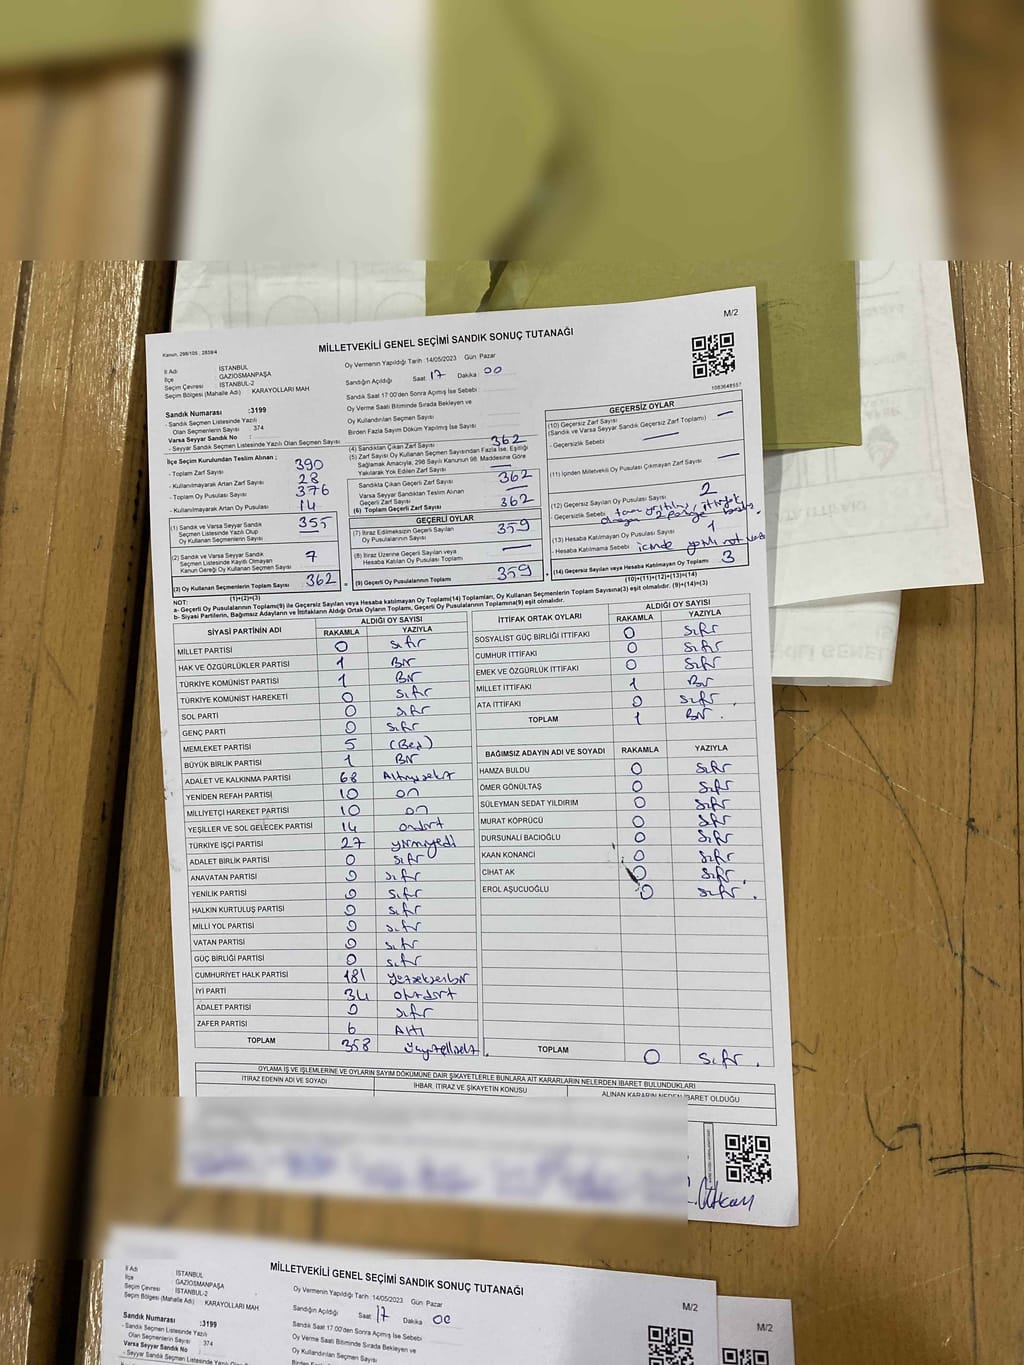 M/2
Kanun, 298/105 , 2839/4
MİLLETVEKİLİ GENEL SEÇİMİ SANDIK SONUÇ TUTANAĞI
İl Adı : İSTANBUL
İlçe : GAZİOSMANPAŞA
Seçim Çevresi : İSTANBUL-2
Seçim Bölgesi (Mahalle Adı) : KARAYOLLARI MAH
Oy Vermenin Yapıldığı Tarih :14/05/2023 Gün: Pazar
Sandığın Açıldığı Saat 17 Dakika 00
Sandık Saat 17:00'den Sonra Açmış İse Sebebi
Oy Verme Saati Bitiminde Sırada Bekleyen ve
Oy Kullandırılan Seçmen Sayısı
Birden Fazla Sayım Döküm Yapılmış İse Sayısı
1083648557
Sandık Numarası :3199
- Sandık Seçmen Listesinde Yazılı
Olan Seçmenlerin Sayısı : 374
Varsa Seyyar Sandık No :
- Seyyar Sandık Seçmen Listesinde Yazılı Olan Seçmen Sayısı
İlçe Seçim Kurulundan Teslim Alınan ;
- Toplam Zarf Sayısı 390
- Kullanılmayarak Artan Zarf Sayısı 28
- Toplam Oy Pusulası Sayısı 376
- Kullanılmayarak Artan Oy Pusulası 14
(1) Sandık ve Varsa Seyyar Sandık
Seçmen Listesinde Yazılı Olup
Oy Kullanan Seçmenlerin Sayısı 355
(2) Sandık ve Varsa Seyyar Sandık
Seçmen Listesinde Kayıtlı Olmayan
Kanun Gereği Oy Kullanan Seçmen Sayısı 7
(3) Oy Kullanan Seçmenlerin Toplam Sayısı 362
(1)+(2)=(3)
(4) Sandıktan Çıkan Zarf Sayısı 362
(5) Zarf Sayısı Oy Kullanan Seçmen Sayısından Fazla İse, Eşitliği
Sağlamak Amacıyla, 298 Sayılı Kanunun 98. Maddesine Göre
Yakılarak Yok Edilen Zarf Sayısı —
Sandıkta Çıkan Geçerli Zarf Sayısı 362
Varsa Seyyar Sandıktan Teslim Alınan
Geçerli Zarf Sayısı —
(6) Toplam Geçerli Zarf Sayısı 362
GEÇERLİ OYLAR
(7) İtiraz Edilmeksizin Geçerli Sayılan
Oy Pusulasının Sayısı 359
(8) İtiraz Üzerine Geçerli Sayılan veya
Hesaba Katılan Oy Pusulası Toplamı —
(9) Geçerli Oy Pusulalarının Toplamı 359
GEÇERSİZ OYLAR
(10) Geçersiz Zarf Sayısı
(Sandık ve Varsa Seyyar Sandık Geçersiz Zarf Toplamı) —
- Geçersizlik Sebebi —
(11) İçinden Milletvekili Oy Pusulası Çıkmayan Zarf Sayısı —
(12) Geçersiz Sayılan Oy Pusulası Sayısı 2
- Geçersizlik Sebebi
(13) Hesaba Katılmayan Oy Pusulası Sayısı 1
- Hesaba Katılmama Sebebi içinde yazılı not
(14) Geçersiz Sayılan veya Hesaba Katılmayan Oy Toplamı 3
(10)+(11)+(12)+(13)=(14)
NOT:
a- Geçerli Oy Pusulalarının Toplamı(9) ile Geçersiz Sayılan veya Hesaba Katılmayan Oy Toplamı(14) Toplamları, Oy Kullanan Seçmenlerin Toplam Sayısına(3) eşit olmalıdır. (9)+(14)=(3)
b- Siyasi Partilerin, Bağımsız Adayların ve İttifakların Aldığı Ortak Oyların Toplamı, Geçerli Oy Pusulalarının Toplamına(9) eşit olmalıdır.
SİYASİ PARTİNİN ADI ALDIĞI OY SAYISI
RAKAMLA YAZIYLA
MİLLET PARTİSİ 0 sıfır
HAK VE ÖZGÜRLÜKLER PARTİSİ 1 Bir
TÜRKİYE KOMÜNİST PARTİSİ 1 Bir
TÜRKİYE KOMÜNİST HAREKETİ 0 sıfır
SOL PARTİ 0 sıfır
GENÇ PARTİ 0 sıfır
MEMLEKET PARTİSİ 5 (Beş)
BÜYÜK BİRLİK PARTİSİ 1 Bir
ADALET VE KALKINMA PARTİSİ 68 Altmışsekiz
YENİDEN REFAH PARTİSİ 10 on
MİLLİYETÇİ HAREKET PARTİSİ 10 on
YEŞİLLER VE SOL GELECEK PARTİSİ 14 ondört
TÜRKİYE İŞÇİ PARTİSİ 27 yirmiyedi
ADALET BİRLİK PARTİSİ 0 sıfır
ANAVATAN PARTİSİ 0 sıfır
YENİLİK PARTİSİ 0 sıfır
HALKIN KURTULUŞ PARTİSİ 0 sıfır
MİLLİ YOL PARTİSİ 0 sıfır
VATAN PARTİSİ 0 sıfır
GÜÇ BİRLİĞİ PARTİSİ 0 sıfır
CUMHURİYET HALK PARTİSİ 181 yüzseksenbir
İYİ PARTİ 34 otuzdört
ADALET PARTİSİ 0 sıfır
ZAFER PARTİSİ 6 Altı
TOPLAM 358 üçyüzellisekiz
İTTİFAK ORTAK OYLARI ALDIĞI OY SAYISI
RAKAMLA YAZIYLA
SOSYALİST GÜÇ BİRLİĞİ İTTİFAKI 0 sıfır
CUMHUR İTTİFAKI 0 sıfır
EMEK VE ÖZGÜRLÜK İTTİFAKI 0 sıfır
MİLLET İTTİFAKI 1 Bir
ATA İTTİFAKI 0 sıfır
TOPLAM 1 Bir
BAĞIMSIZ ADAYIN ADI VE SOYADI RAKAMLA YAZIYLA
HAMZA BULDU 0 sıfır
ÖMER GÖNÜLTAŞ 0 sıfır
SÜLEYMAN SEDAT YILDIRIM 0 sıfır
MURAT KÖPRÜCÜ 0 sıfır
DURSUNALİ BACIOĞLU 0 sıfır
KAAN KONANCİ 0 sıfır
CİHAT AK 0 sıfır
EROL AŞUCUOĞLU 0 sıfır
TOPLAM 0 sıfır
OYLAMA İŞ VE İŞLEMLERİNE VE OYLARIN SAYIM DÖKÜMÜNE DAİR ŞİKAYETLERLE BUNLARA AİT KARARLARIN NELERDEN İBARET BULUNDUKLARI
İTİRAZ EDENİN ADI VE SOYADI İHBAR, İTİRAZ VE ŞİKAYETİN KONUSU ALINAN KARARIN NEDEN İBARET OLDUĞU
MİLLETVEKİLİ GENEL SEÇİMİ SANDIK SONUÇ TUTANAĞI
M/2
İl Adı : İSTANBUL
İlçe : GAZİOSMANPAŞA
Seçim Çevresi : İSTANBUL-2
Seçim Bölgesi (Mahalle Adı) : KARAYOLLARI MAH
Oy Vermenin Yapıldığı Tarih :14/05/2023 Gün: Pazar
Sandığın Açıldığı Saat 17 Dakika 00
Sandık Saat 17:00'den Sonra Açmış İse Sebebi
Oy Verme Saati Bitiminde Sırada Bekleyen ve
Oy Kullandırılan Seçmen Sayısı
Sandık Numarası :3199
- Sandık Seçmen Listesinde Yazılı
Olan Seçmenlerin Sayısı : 374
Varsa Seyyar Sandık No :
M/2